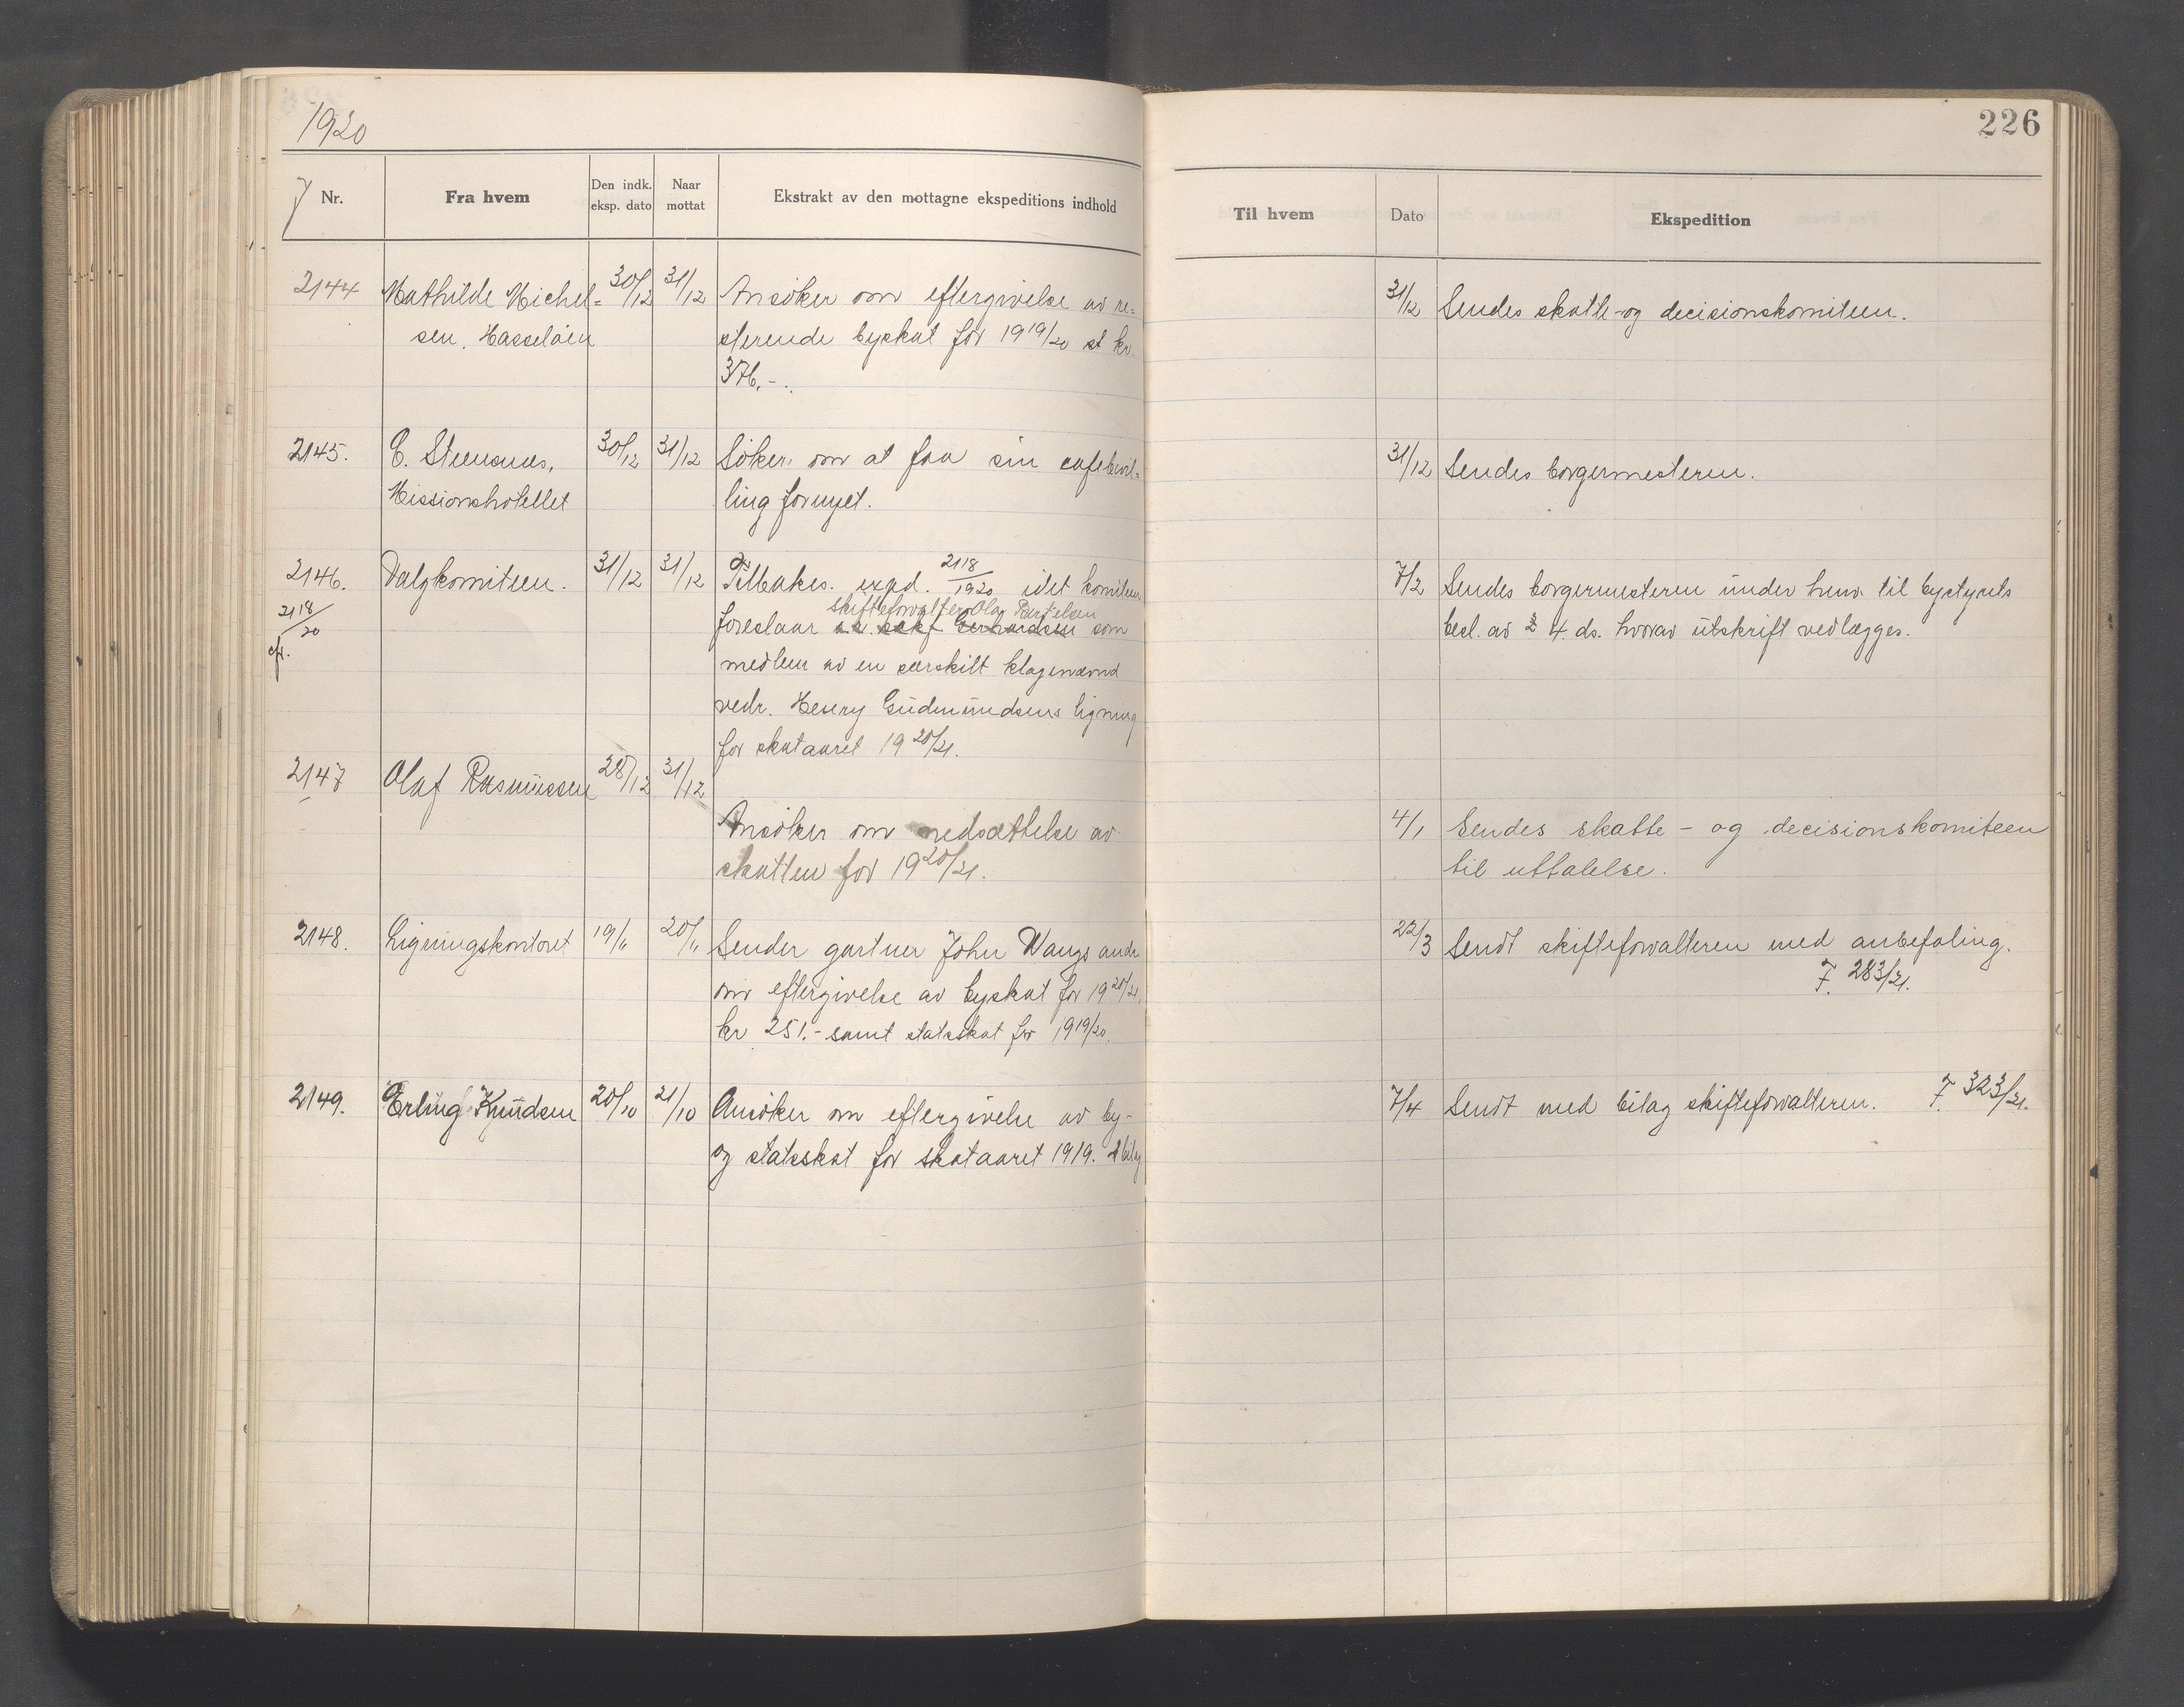 1920
226
Nr.
Fra hvem
Den indk. eksp. dato
Naar mottat
Ekstrakt av den mottagne ekspeditions indhold
Til hvem
Dato
Ekspedition
2144 Mathilde Michel- 30/12 31/12 Ansøker om eftergivelse av re-
sen. Hasseløen sterende byskat for 1919/20 st kr.
376,-.
31/12 Sendes skatte- og decisionskomiteen.
2145. 30/12 31/12 Søker om at faa sin cafebevil-
Missionshotellet ling fornyet.
31/12 Sendes borgermesteren.
2146. Valgkomiteen. 31/12 31/12 Tilbakes. exped. 2118/1920 idet komiteen
2118/20 skifteforvalter Olaf Bertelsen
cfr. foreslaar Gerhardsen som
medlem av en særskilt klagenævnd
vedr. Henry Gudmundsens ligning
for skataaret 1920/21.
7/2 Sendes borgermesteren under henv. til bystyrets
besl. av 4. ds. hvorav utskrift vedlægges.
2147 Olaf Rasmussen 28/12 31/12
Ansøker om nedsættelse av
skatten for 1920/21.
4/1 Sendes skatte- og decisionskomiteen
til uttalelse.
2148. Ligningskontoret 19/11 20/11 Sender gartner John Wangs andr.
om eftergivelse av byskat for 1920/21,
kr 251.- samt statsskat for 1919/20.
22/3 Sendt skifteforvalteren med anbefaling.
F. 283/21.
2149. Erling Knudsen 20/10 21/10 Ansøker om eftergivelse av by-
og statsskat for skataaret 1919. 2 bilag
7/4 Sendt med bilag skifteforvalteren. F. 323/21.